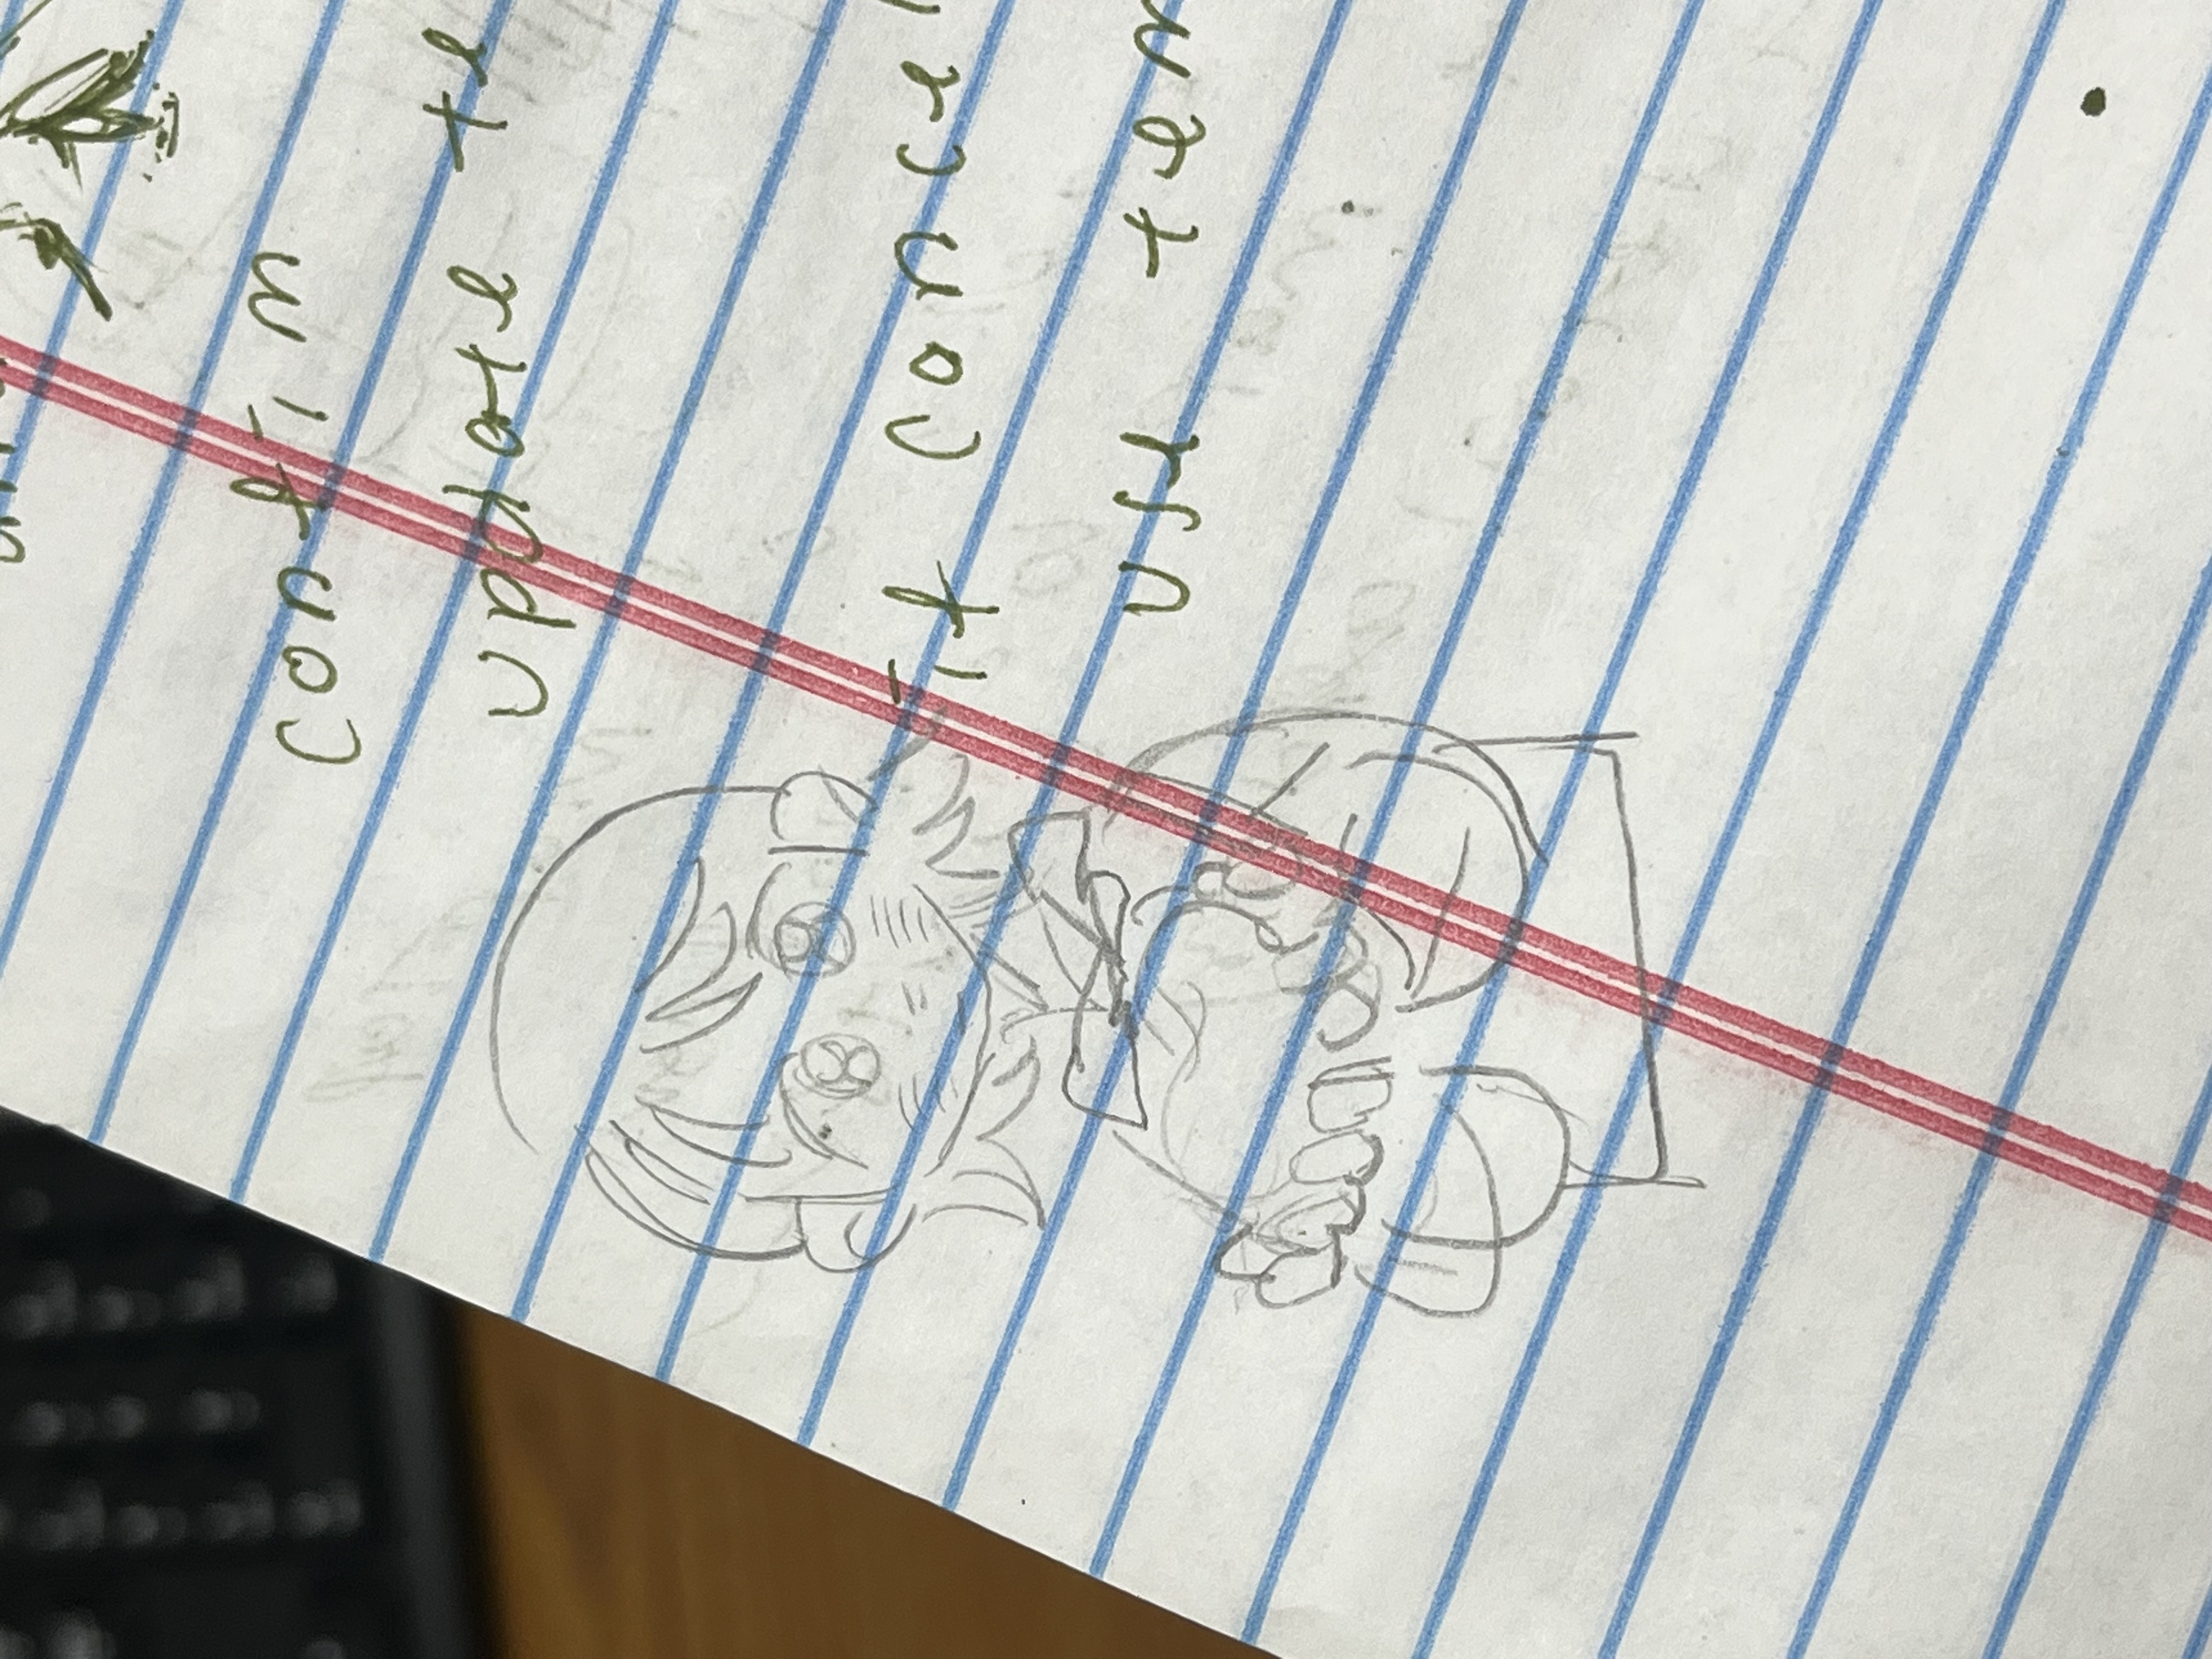 confim
update te
if cancel
use tem